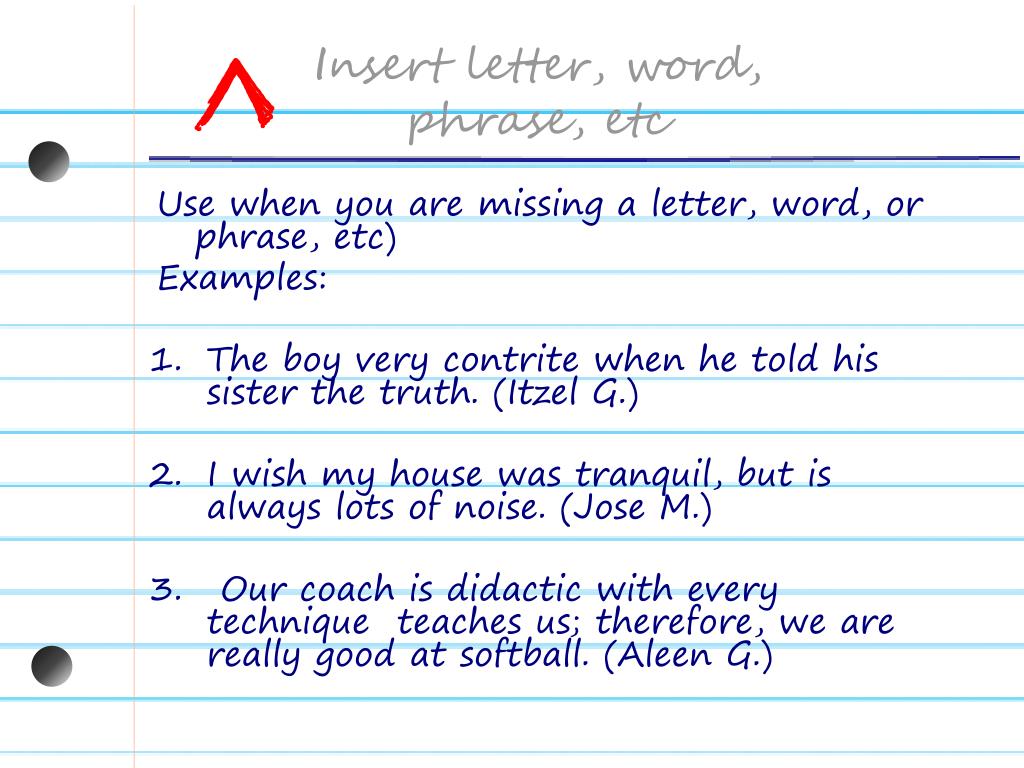 Insert letter, word,
phrase, etc
Use when you are missing a letter, word, or
phrase, etc)
Examples:
1. The boy very contrite when he told his
sister the truth. (Itzel G.)
2. I wish my house was tranquil, but is
always lots of noise. (Jose M.)
3. Our coach is didactic with every
technique teaches us; therefore, we are
really good at softball. (Aleen G.)